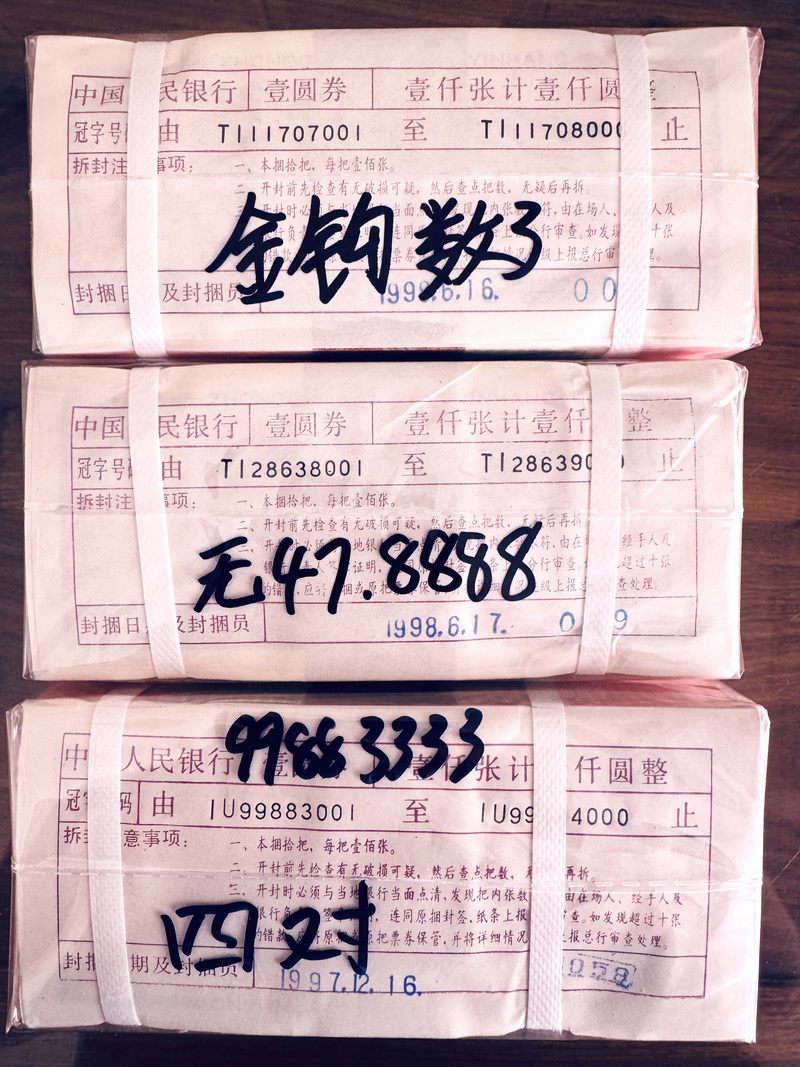 中国 民银行 壹圆券 壹仟张计壹仟圆整
冠字号码 由 TI11707001 至 TI11708000 止
拆封注 事项： 一、本捆拾把，每把壹佰张。
二、开封前先检查有无破损可疑，然后查点把数，无疑后再拆。
金钩数
封捆日 及封捆员 1998.6.16.
中国 民银行 壹圆券 壹仟张计壹仟 整
冠字号码 由 TI28638001 至 TI28639 止
拆封注 事项： 一、本捆拾把，每把壹佰张。
二、开封前先检查有无破损可疑，然后查点把数，无疑后再拆
无47.8888
封捆日 及封捆员 1998.6.17.
99883333
中 人民银行 壹 张计 仟圆整
冠字 码 由 IU99883001 至 IU99 4000 止
拆封 意事项： 一、本捆拾把，每把壹佰张。
二、开封前先检查有无破损可疑，然后查点把数， 再拆。
三、开封时必须与当地银行当面点清，发现把内张数 由在场人、经手人及
银行负 签 连同原捆封签，纸条上报 审查。如发现超过十张
的错款， 把票券保管，并将详细情况 上报总行审查处理。
四对
封捆 期及封捆员 1997.12.16.